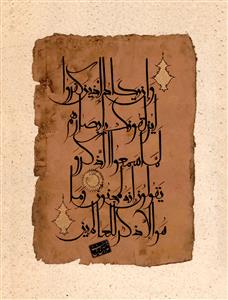 وإن يكاد الذين كفروا
ليزلقونك بأبصارهم
لما سمعوا الذكر و
يقولون إنه لمجنون وما
هو إلا ذكر للعالمين